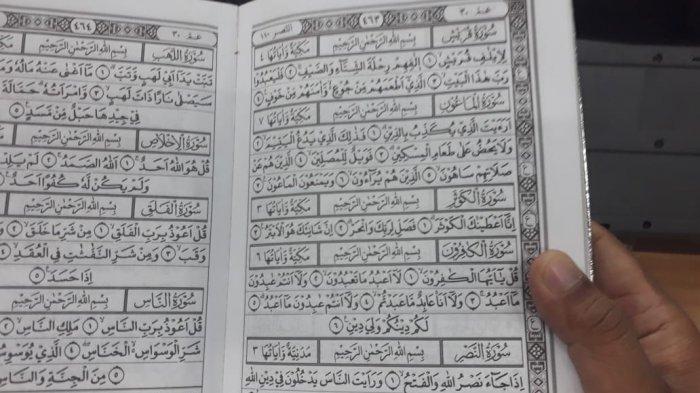 عم ٣٠
٤٦٣
النصر ١١٠
سُورَةُ قُرَيْشٍ بِسْمِ اللهِ الرَّحْمٰنِ الرَّحِيْمِ مَكِّيَّةٌ وَآيَاتُهَا ٤
لِإِيْلٰفِ قُرَيْشٍ ١ اٖلٰفِهِمْ رِحْلَةَ الشِّتَاۤءِ وَالصَّيْفِ ٢ فَلْيَعْبُدُوْا
رَبَّ هٰذَا الْبَيْتِ ٣ الَّذِيْ أَطْعَمَهُمْ مِنْ جُوْعٍ وَاٰمَنَهُمْ مِنْ خَوْفٍ ٤
سُورَةُ الْمَاعُونِ بِسْمِ اللهِ الرَّحْمٰنِ الرَّحِيْمِ مَكِّيَّةٌ وَآيَاتُهَا ٧
اَرَءَيْتَ الَّذِيْ يُكَذِّبُ بِالدِّيْنِ ١ فَذٰلِكَ الَّذِيْ يَدُعُّ الْيَتِيْمَ ٢
وَلَا يَحُضُّ عَلٰى طَعَامِ الْمِسْكِيْنِ ٣ فَوَيْلٌ لِلْمُصَلِّيْنَ ٤ الَّذِيْنَ هُمْ عَنْ
صَلَاتِهِمْ سَاهُوْنَ ٥ الَّذِيْنَ هُمْ يُرَاۤءُوْنَ ٦ وَيَمْنَعُوْنَ الْمَاعُوْنَ ٧
سُورَةُ الْكَوْثَرِ بِسْمِ اللهِ الرَّحْمٰنِ الرَّحِيْمِ مَكِّيَّةٌ وَآيَاتُهَا ٣
إِنَّا أَعْطَيْنٰكَ الْكَوْثَرَ ١ فَصَلِّ لِرَبِّكَ وَانْحَرْ ٢ إِنَّ شَانِئَكَ هُوَ الْأَبْتَرُ ٣
سُورَةُ الْكَافِرُونَ بِسْمِ اللهِ الرَّحْمٰنِ الرَّحِيْمِ مَكِّيَّةٌ وَآيَاتُهَا ٦
قُلْ يٰأَيُّهَا الْكٰفِرُوْنَ ١ لَا أَعْبُدُ مَا تَعْبُدُوْنَ ٢ وَلَا أَنْتُمْ عٰبِدُوْنَ
مَا أَعْبُدُ ٣ وَلَا أَنَا عَابِدٌ مَا عَبَدْتُمْ ٤ وَلَا أَنْتُمْ عٰبِدُوْنَ مَا أَعْبُدُ ٥
لَكُمْ دِيْنُكُمْ وَلِيَ دِيْنِ ٦
سُورَةُ النَّصْرِ بِسْمِ اللهِ الرَّحْمٰنِ الرَّحِيْمِ مَدَنِيَّةٌ وَآيَاتُهَا ٣
إِذَا جَاۤءَ نَصْرُ اللهِ وَالْفَتْحُ ١ وَرَأَيْتَ النَّاسَ يَدْخُلُوْنَ فِيْ دِيْنِ اللهِ
عم ٣٠
٤٦٤
سُورَةُ اللَّهَبِ بِسْمِ اللهِ الرَّحْمٰنِ الرَّحِيْمِ
تَبَّتْ يَدَا أَبِيْ لَهَبٍ وَتَبَّ ١ مَا أَغْنٰى عَنْهُ مَالُهُ وَمَا
سَيَصْلٰى نَارًا ذَاتَ لَهَبٍ ٣ وَامْرَأَتُهُ حَمَّالَةَ
فِيْ جِيْدِهَا حَبْلٌ مِنْ مَسَدٍ ٥
سُورَةُ الْإِخْلَاصِ بِسْمِ اللهِ الرَّحْمٰنِ الرَّحِيْمِ
قُلْ هُوَ اللهُ أَحَدٌ ١ اللهُ الصَّمَدُ ٢ لَمْ يَلِدْ
وَلَمْ يَكُنْ لَهُ كُفُوًا أَحَدٌ ٤
سُورَةُ الْفَلَقِ بِسْمِ اللهِ الرَّحْمٰنِ الرَّحِيْمِ
قُلْ أَعُوْذُ بِرَبِّ الْفَلَقِ ١ مِنْ شَرِّ مَا خَلَقَ ٢
وَقَبَ ٣ وَمِنْ شَرِّ النَّفّٰثٰتِ فِي الْعُقَدِ ٤
إِذَا حَسَدَ ٥
سُورَةُ النَّاسِ بِسْمِ اللهِ الرَّحْمٰنِ الرَّحِيْمِ
قُلْ أَعُوْذُ بِرَبِّ النَّاسِ ١ مَلِكِ النَّاسِ ٢
شَرِّ الْوَسْوَاسِ الْخَنَّاسِ ٤ الَّذِيْ يُوَسْوِسُ
٥ مِنَ الْجِنَّةِ وَالنَّاسِ